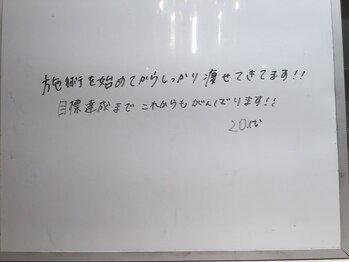 施術を始めてからしっかり痩せてきてます!!
目標達成まで これからもがんばります!!
20代